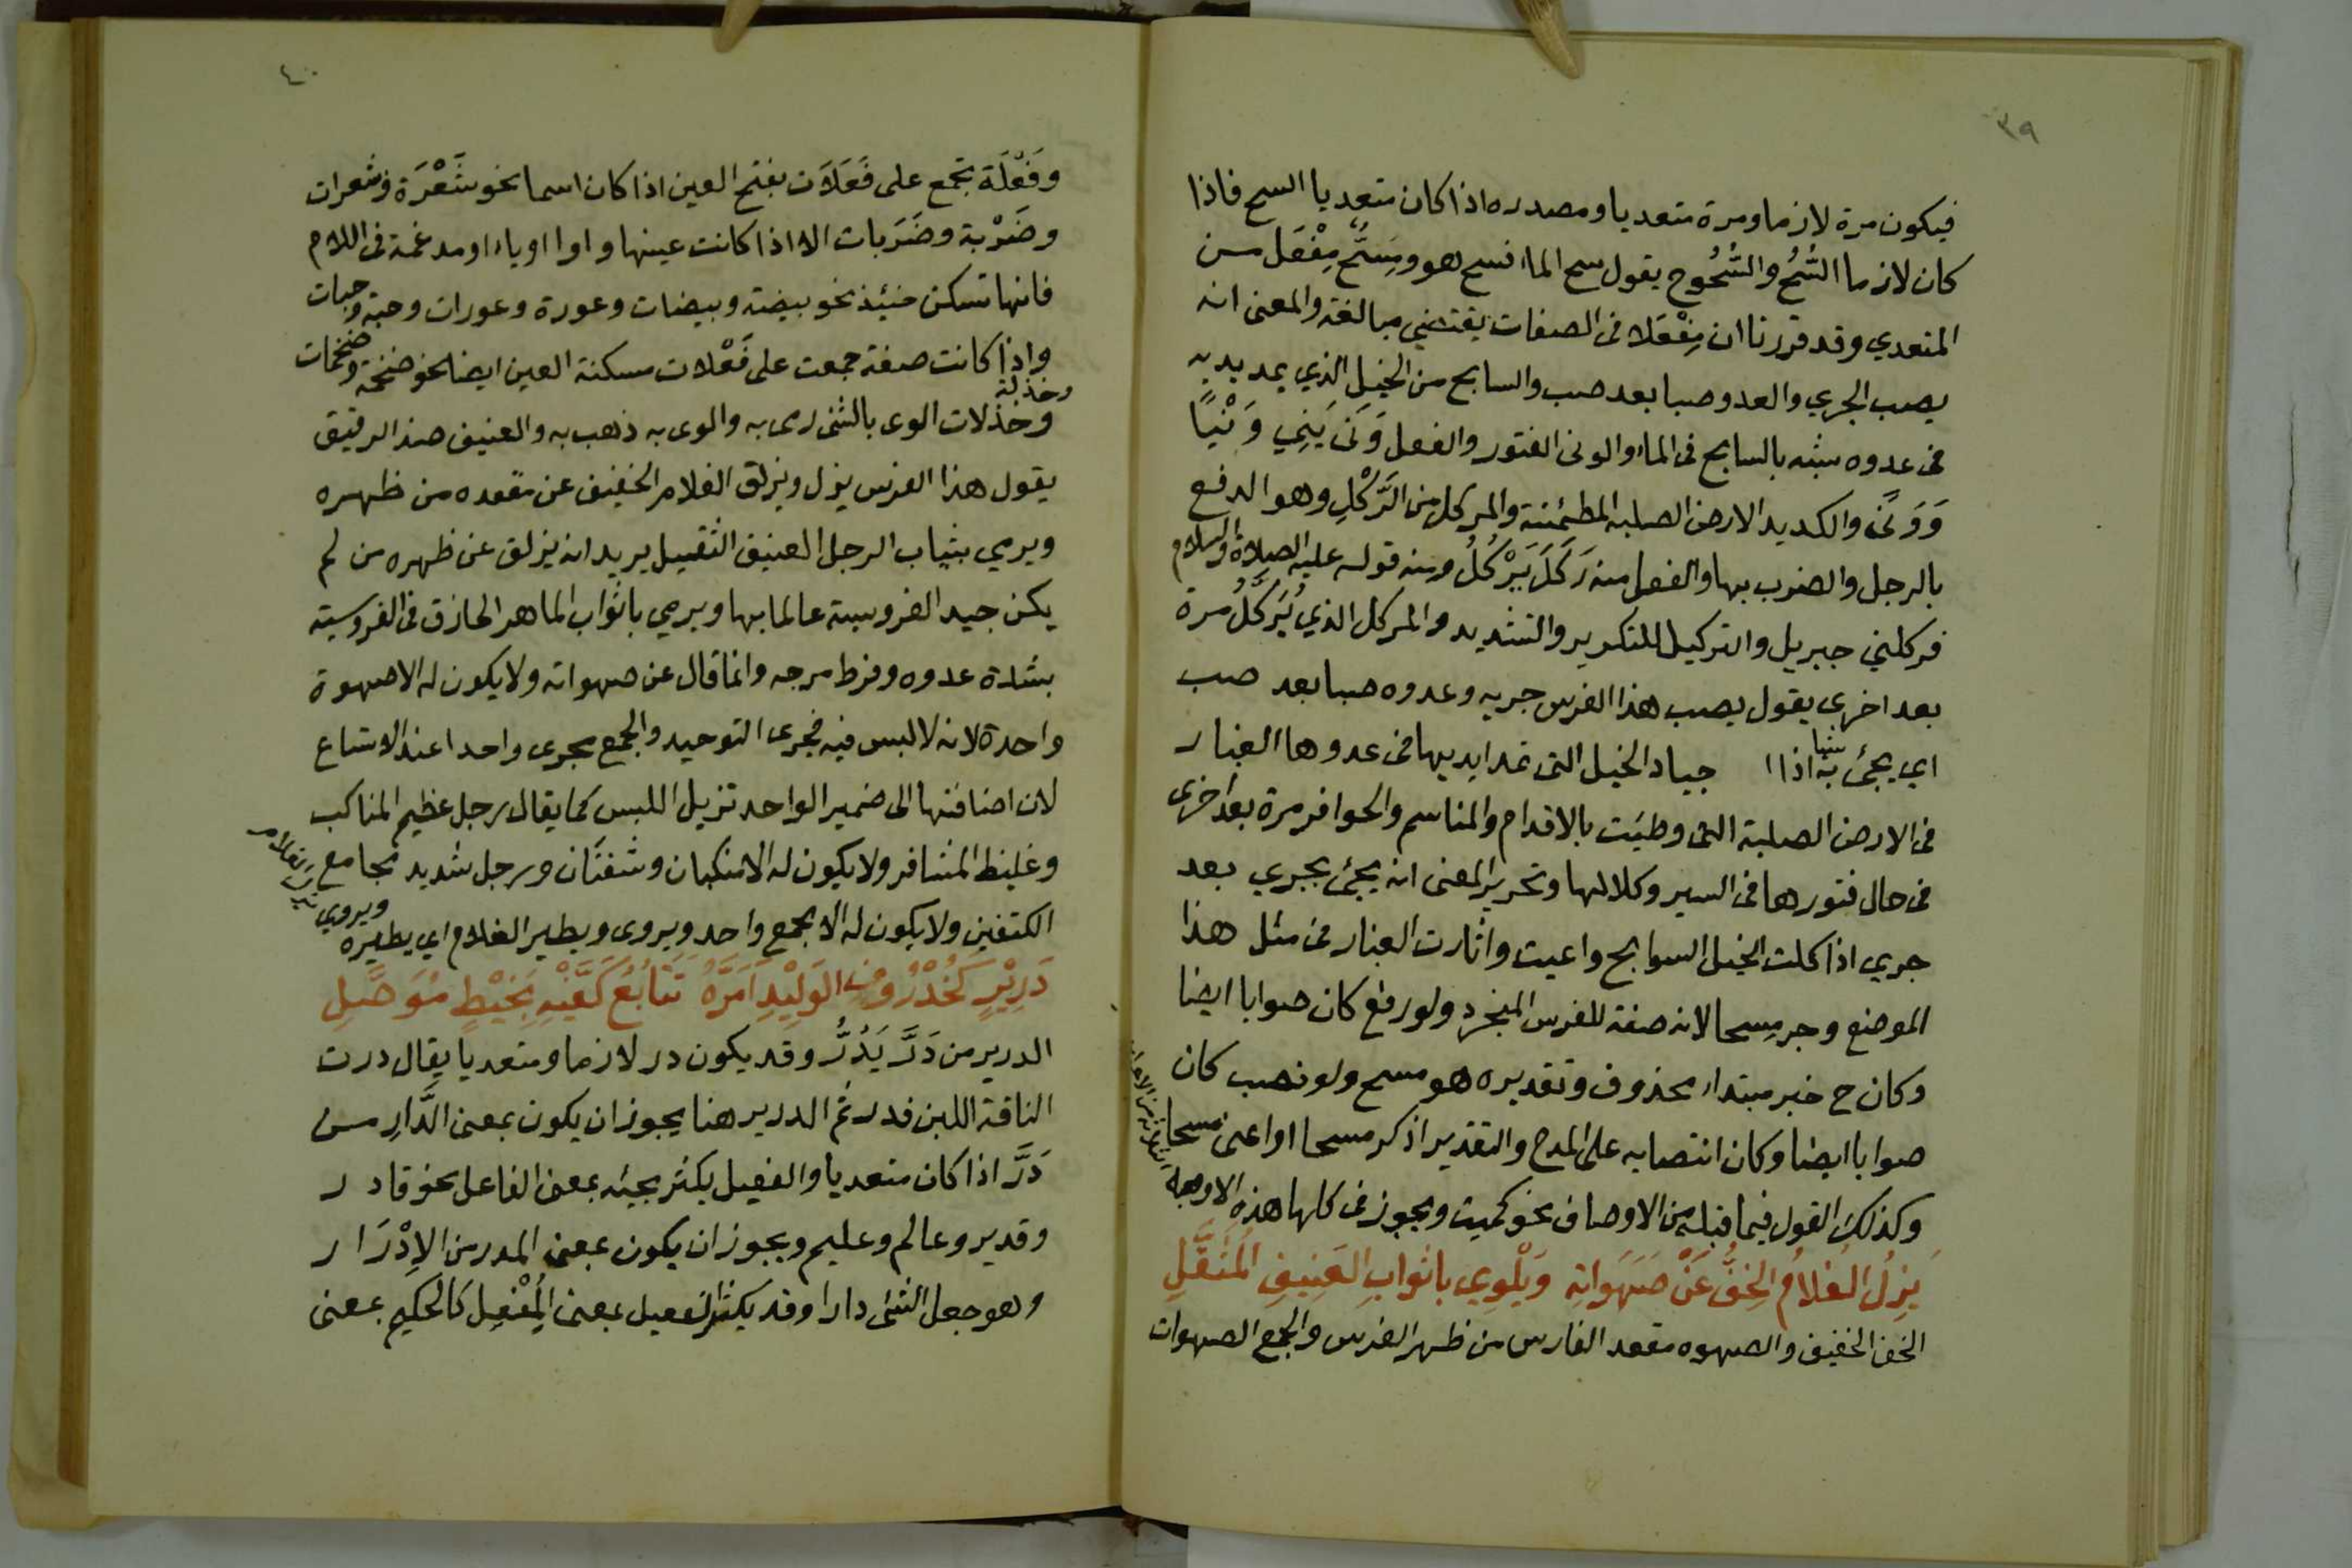 ٣٩
فيكون مرة لازما ومرة متعديا ومصدره اذا كان متعديا السح فاذا
كان لازما السُّحُّ والسُّحُوح يقول سح الماء فسح هو ومِسَحّ مِفْعَل مــن
المتعدي وقد قررنا ان مِفْعَلا في الصفات يقتضي مبالغة والمعنى انه
يصب الجري والعدو صبا بعد صب والسابح من الخيل الذي يمد يديه
في عدوه شبه بالسابح في الماء والونى الفتور والفعل وَنَى يَنِي وَنْيًا
وَوَنًى والكديد الارض الصلبة المطمئنة والمركل من الرَّكْلِ وهو الدفع
بالرجل والضرب بها والفعل منه رَكَلَ يَرْكُلُ ومنه قوله عليه الصلاة والسلام
فركلني جبريل والتركيل للتكرير والتشديد والمركل الذي يُرَكَّلُ مرة
بعد اخرى يقول يصب هذا الفرس جريه وعدوه صبا بعد صب
اي يجئ به اذا جياد الخيل التي تمد ايديها في عدوها الغبار
في الارض الصلبة التي وطئت بالاقدام والمناسم والحوافر مرة بعد اخرى
في حال فتورها في السير وكلالها وتحرير المعنى انه يجئ بجري بعد
جري اذا كلت الخيل السوابح واعيت واثارت الغبار في مثل هذا
الموضع وجر مسحا لانه صفة للفرس المنجرد ولو رفع كان صوابا ايضا
وكان ح خبر مبتداء محذوف وتقديره هو مسح ولو نصب كان
صوابا ايضا وكان انتصابه على المدح والتقدير اذكر مسحا او اعنى مسحا
وكذلك القول فيما قبله من الاوصاف نحو كميت ويجوز في كلها هذه الاوجه
يَزِلُّ الغُلامُ الخِفُّ عَنْ صَهَوَاتِهِ وَيَلْوِي باثوابِ العَنِيفِ المُثَقَّلِ
الخف الخفيف والصهوه مقعد الفارس من ظهر الفرس والجمع الصهوات
٤٠
وفَعْلَة تجمع على فَعَلَات بفتح العين اذا كان اسما نحو شَعْرَة وشعرات
وضَرْبة وضَرَبات الا اذا كانت عينها واوا او ياء او مدغمة في اللام
فانها تسكن حنيئذ نحو بيضة وبيضات وعورة وعورات وحبة وحبات
واذا كانت صفة جمعت على فَعْلات مسكنة العين ايضا نحو ضخمة وضخمات
وخذلة
وخذلات الوى بالشئ رمى به والوى به ذهب به والعنيف ضد الرفيق
يقول هذا الفرس يزل ويزلق الغلام الخفيف عن مقعده من ظهره
ويرمي بثياب الرجل العنيف الثقيل يريد انه يزلق عن ظهره من لم
يكن جيد الفروسية عالما بها ويرمي باثواب الماهر الحاذق في الفروسية
بشدة عدوه وفرط مرجه وانما قال عن صهواته ولا يكون له الا صهوة
واحدة لانه لا لبس فيه فجرى التوحيد والجمع مجرى واحدا عند الاتساع
لان اضافتها الى ضمير الواحد تزيل اللبس كما يقال رجل عظيم المناكب
وغليظ المشافر ولا يكون له الا منكبان وشفتان ورجل شديد مجامع
الكتفين ولا يكون له الا مجمع واحد ويروى ويطير الغلام اي يطيره ويروي
دَرِيْرٍ كَخُذْرُوفِ الوَلِيْدِ اَمَرَّهُ تَتَابُعُ كَفَّيْهِ بِخَيْطٍ مُوَصَّلِ
الدرير من دَرَّ يَدُرُّ وقد يكون در لازما ومتعديا يقال درت
الناقة اللبن فدر ثم الدرير هنا يجوز ان يكون بمعنى الدَّارِ مــن
دَرَّ اذا كان متعديا والفعيل يكثر مجيئه بمعنى الفاعل نحو قادر
وقدير وعالم وعليم ويجوز ان يكون بمعنى المدر من الإدْرَار
وهو جعل الشئ دارا وقد يكثر الفعيل بمعنى المُفْعِل كالحكيم بمعنى